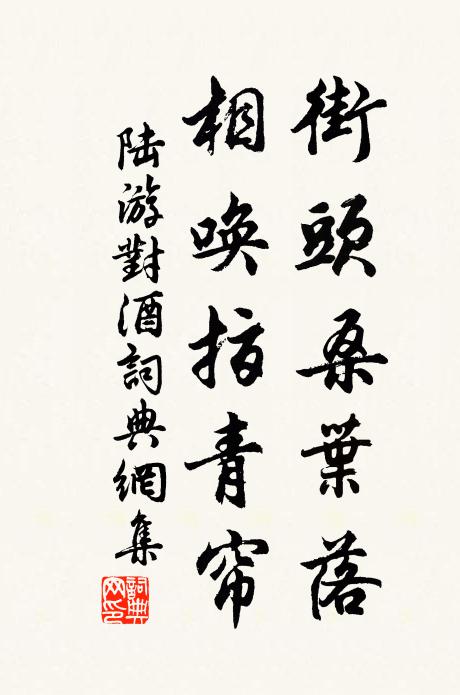 街頭桑葉落
相喚指青帘
陆游對酒詞典網集
詞典網印